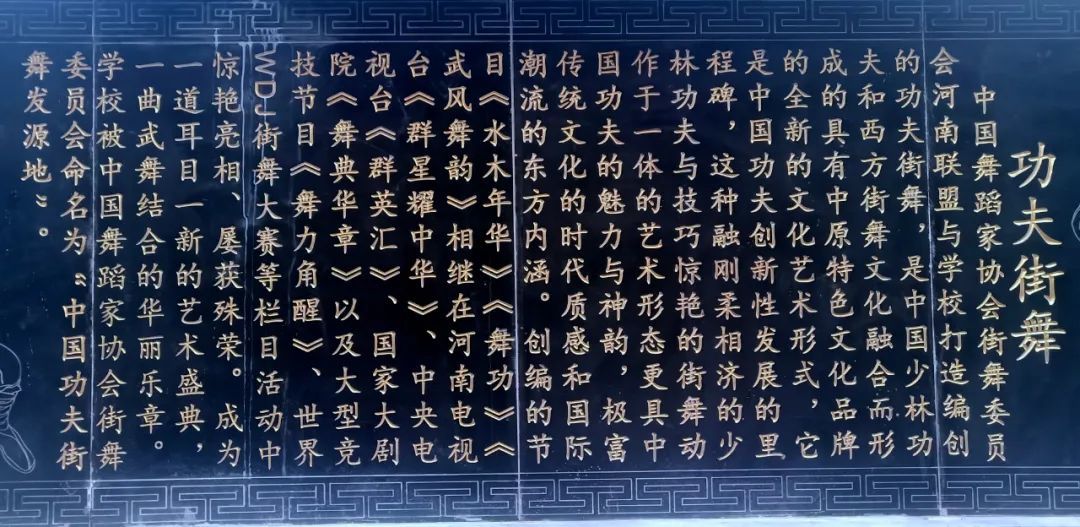 功夫街舞
中国舞蹈家协会街舞委员
会河南联盟与学校打造编创
的功夫街舞，是中国少林功
夫和西方街舞文化融合而形
成的具有中原特色文化品牌
的全新的文化艺术形式，它
是中国功夫创新性发展的里
程碑，这种融刚柔相济的少
林功夫与技巧惊艳的街舞动
作于一体的艺术形态更具中
国功夫的魅力与神韵，极富
传统文化的时代质感和国际
潮流的东方内涵。创编的节
目《水木年华》《舞功》《
武风舞韵》相继在河南电视
台《群星耀中华》、中央电
视台《群英汇》、国家大剧
院《舞典华章》以及大型竞
技节目《舞力角醒》、世界
WDJ街舞大赛等栏目活动中
惊艳亮相、屡获殊荣。成为
一道耳目一新的艺术盛典，
一曲武舞结合的华丽乐章。
学校被中国舞蹈家协会街舞
委员会命名为“中国功夫街
舞发源地”。